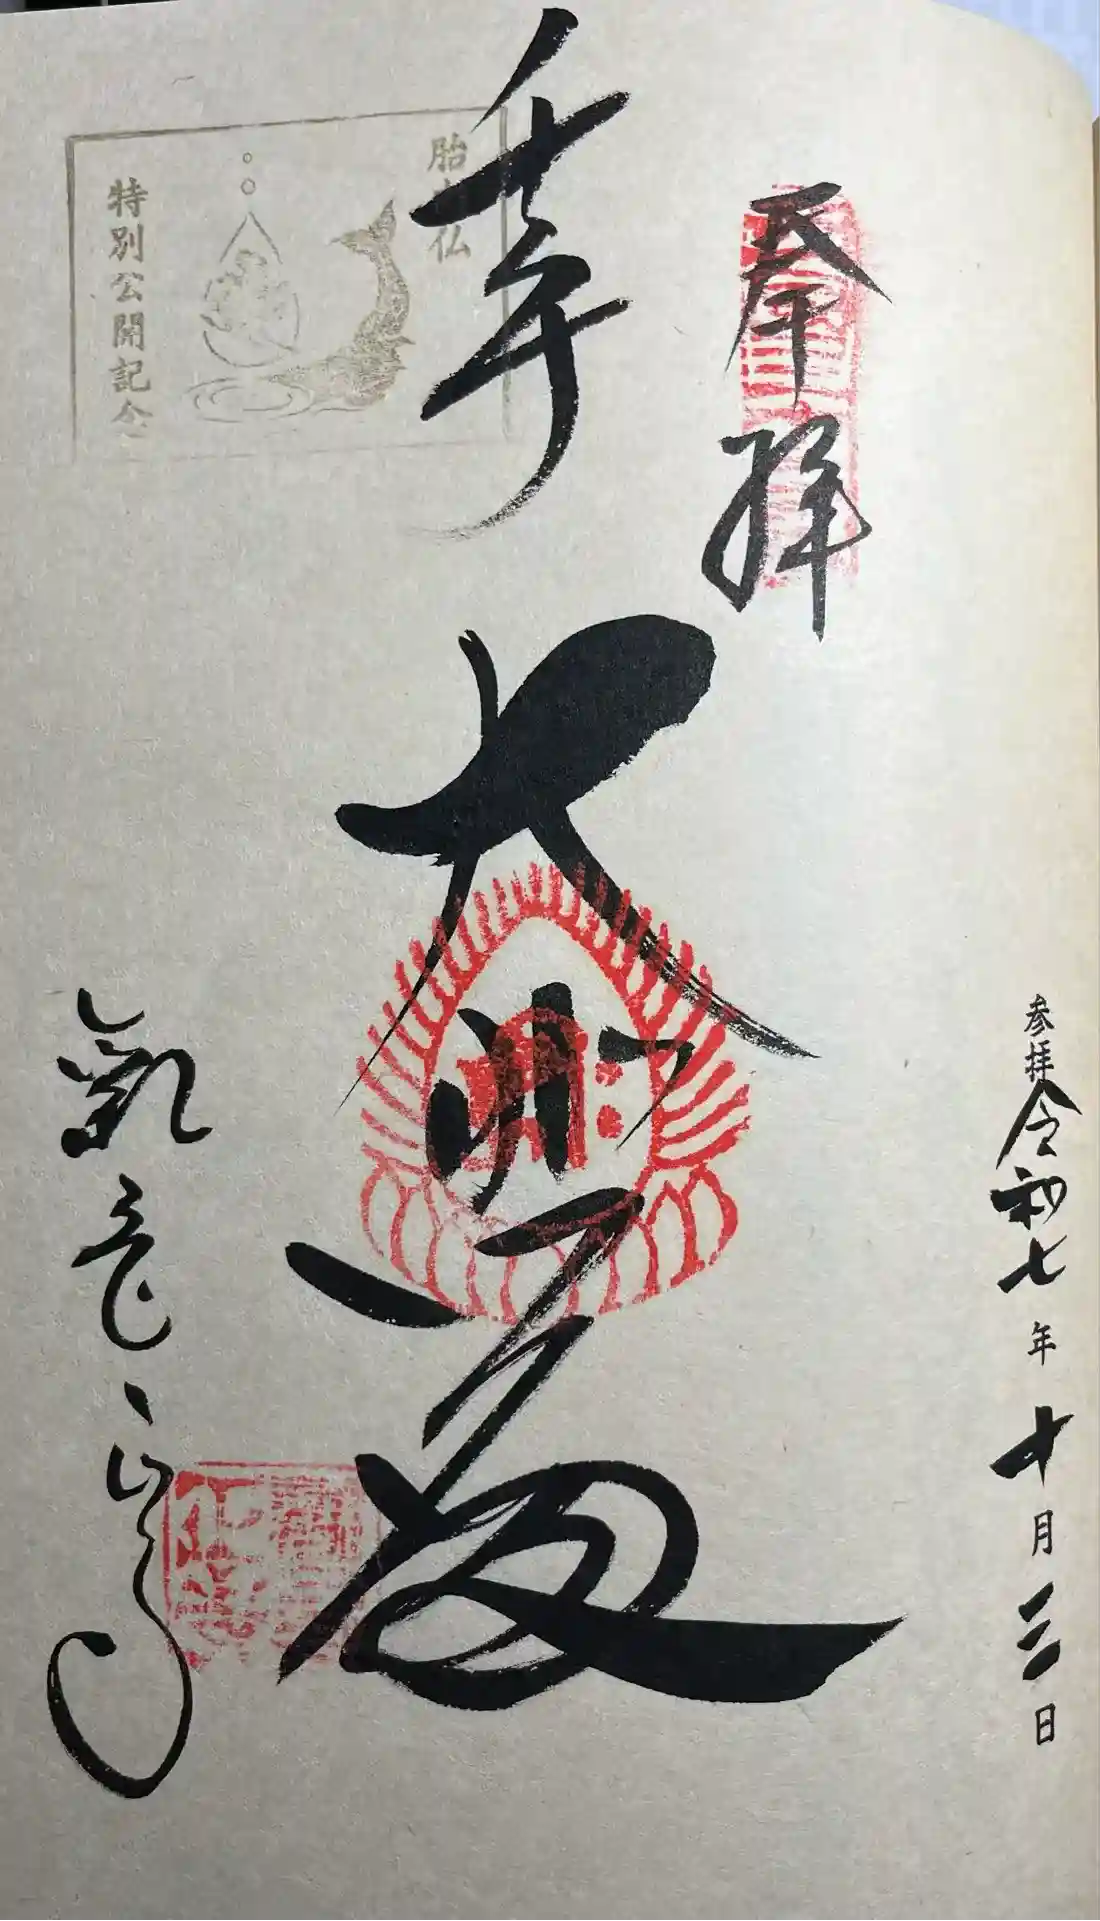 奉拝
参拝 令和七年十月三日
千手大悲殿
観音正寺
胎内仏
特別公開記念